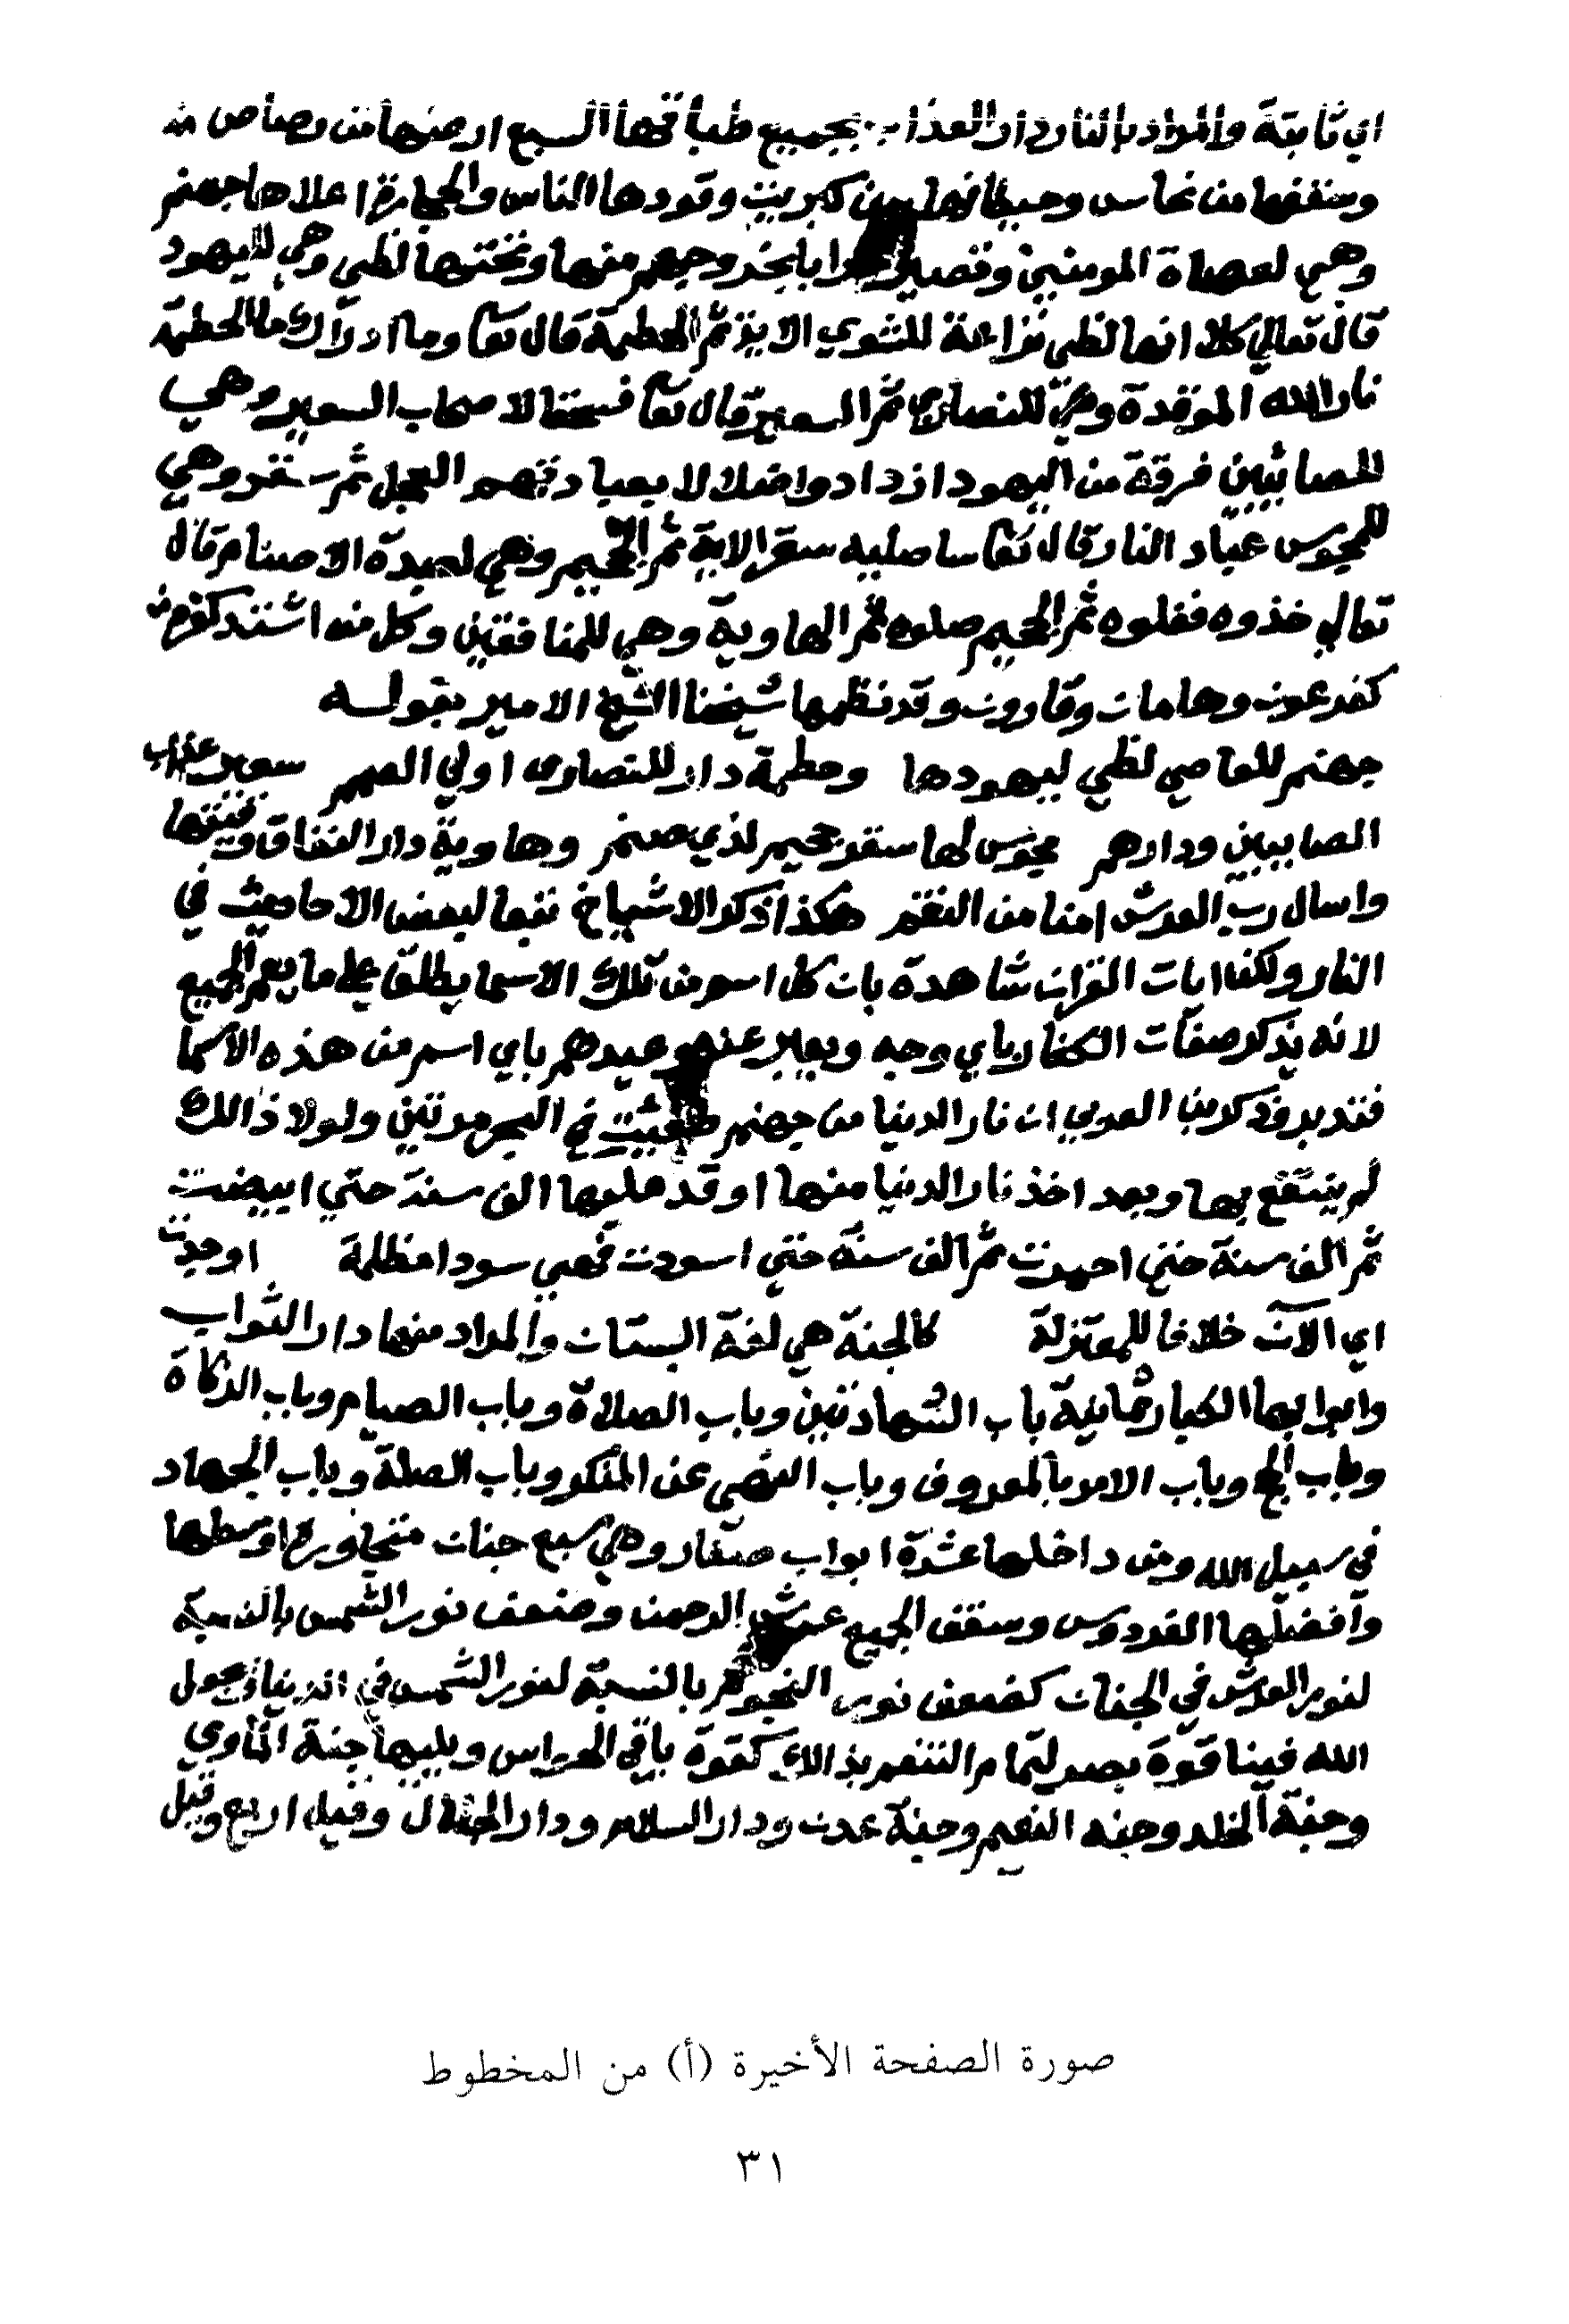 اي ثابتة والمراد بالنار دار العذاب بجميع طباقها السبع ارضها من رصاص
وسقفها من نحاس وحيطانها من كبريت وقودها الناس والحجارة اعلاها جهنم
وهي لعصاة المومنين وتصير خرابا بخروجهم منها وتحتها لظي وهي لليهود
قال تعالي كلا انها لظي نزاعة للشوي الاية ثم الحطمة قال تعا وما ادراك ما الحطمة
نار الله الموقدة وهي للنصاري ثم السعير قال تعا فسحقا لاصحاب السعير وهي
للصابئين فرقة من اليهود ازدادوا ضلالا بعبادتهم العجل ثم سقر وهي
للمجوس عباد النار قال تعا ساصليه سقر الاية ثم الجحيم وهي لعبدة الاصنام قال
تعالي خذوه فغلوه ثم الجحيم صلوه ثم الهاوية وهي للمنافقين وكل من اشتد كفره
كفرعون وهامان وقارون وقد نظمها شيخنا الشيخ الامير بقوله
جهنم للعاصي لظي ليهودها وحطمة دار للنصاري اولي الصمم سعير عذاب
الصابيين ودارهم مجوس لها سقر جحيم لذي صنم وهاوية دار النفاق وقيتها
واسال رب العرش امنا من النقم هكذا ذكر الاشياخ تبعا لبعض الاحاديث في
النار ولكن ايات القران شاهدة بان كل اسم من تلك الاسما يطلق علي ما يعم الجميع
لانه يذكر صفات الكفار باي وجه ويعبر عن وعيدهم باي اسم من هذه الاسما
فتدبر وذكر ابن العربي ان نار الدنيا من جهنم طفيت في البحر مرتين ولولا ذالك
لم ينتفع بها وبعد اخذ نار الدنيا منها اوقد عليها الف سنة حتي ابيضت
ثم الف سنة حتي احمرت ثم الف سنة حتي اسودت فهي سودا مظلمة اوجدت
اي الان خلافا للمعتزلة كالجنة هي لغة البستان والمراد منها دار الثواب
وابوابها الكبار ثمانية باب الشهادتين وباب الصلاة وباب الصيام وباب الزكاة
وباب الحج وباب الامر بالمعروف وباب النهي عن المنكر وباب الصلة وباب الجهاد
في سبيل الله ومن داخلها عشرة ابواب صغار وهي سبع جنات متجاورة اوسطها
وافضلها الفردوس وسقف الجميع عرش الرحمن وضعف نور الشمس بالنسبة
لنور العرش في الجنات كضعف نور النجوم بالنسبة لنور الشمس في الدنيا
الله فينا قوة بصر لتمام التنعم بذالك كقوة باقي الحواس ويليها جنة الماوي
وجنة الخلد وجنه النعيم وجنة عدن ودار السلام ودار الجلال وقيل اربع وقيل
صورة الصفحة الأخيرة (أ) من المخطوط
٣١